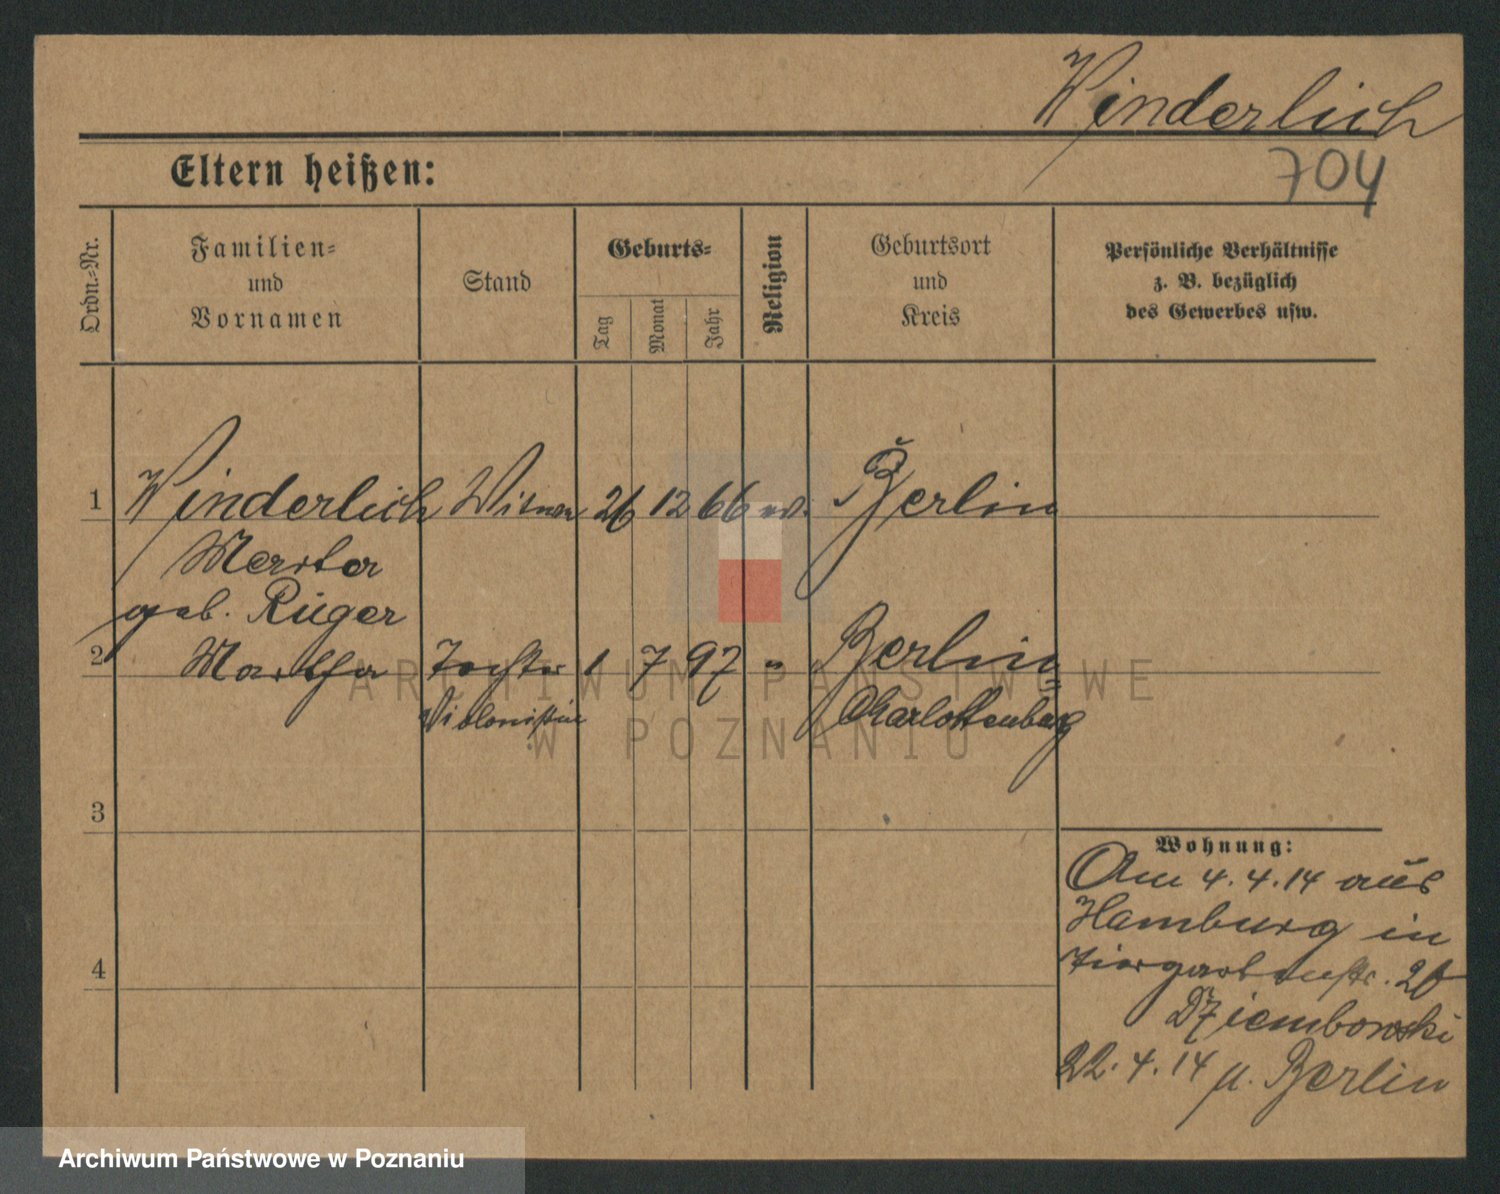 Winderlich
704
Eltern heißen:
Ordn.=Nr.
Familien=
und
Vornamen
Stand
Geburts=
Tag
Monat
Jahr
Religion
Geburtsort
und
Kreis
Persönliche Verhältnisse
z. B. bezüglich
des Gewerbes usw.
1 Winderlich Witwe 26 12 66 ev. Berlin
geb. Rüger
2 Martha Tochter 1 7 97 " Berlin
Violonistin Charlottenburg
3
4
Wohnung:
Am 4.4.14 aus
Hamburg in
Tiergartenstr.
Dziembowski
22.4.14 n. Berlin
ARCHIWUM PAŃSTWOWE
W POZNANIU
Archiwum Państwowe w Poznaniu